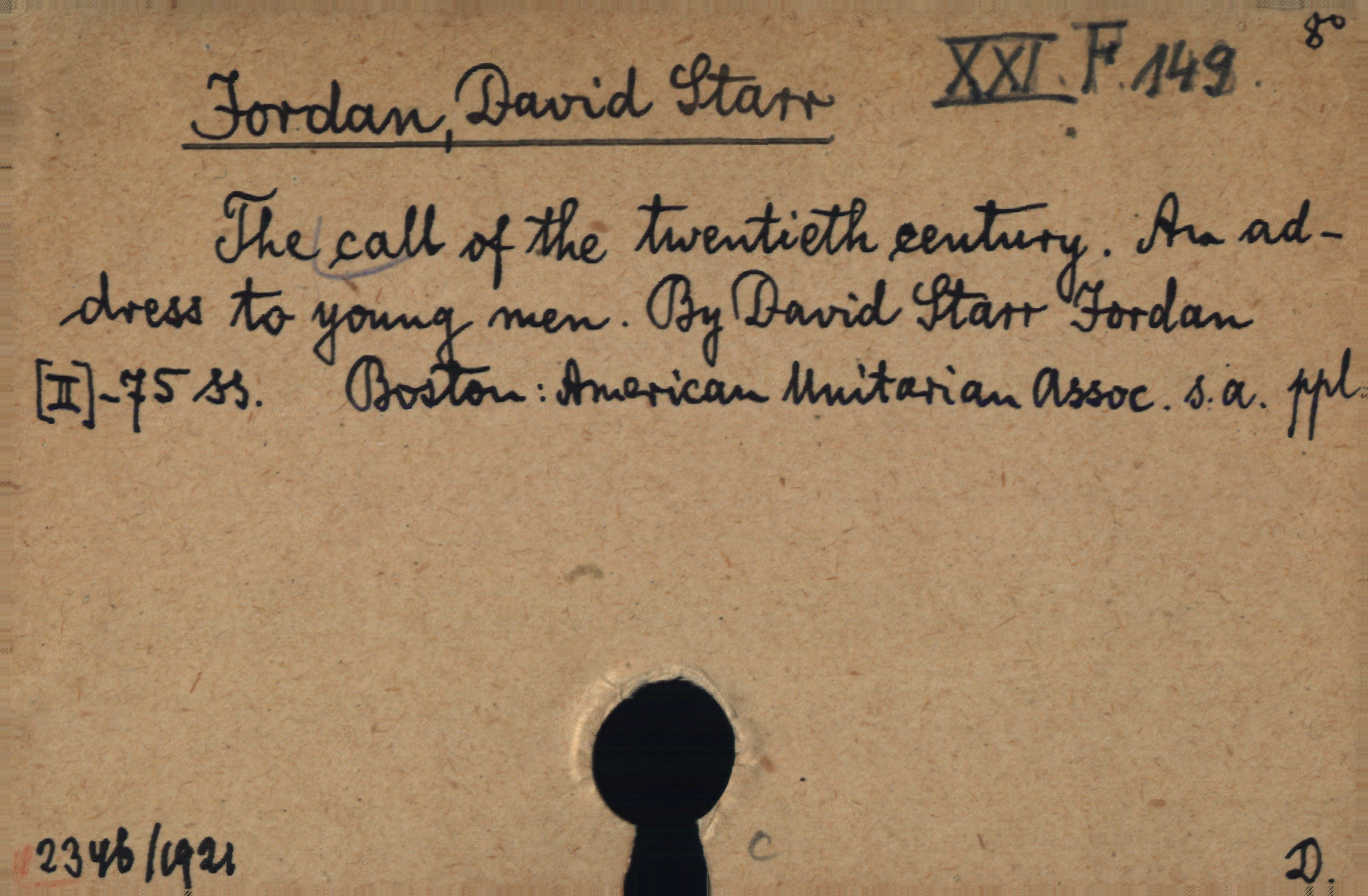 8°
XXI. F. 149.
Jordan, David Starr
The call of the twentieth century. An ad-
dress to young men. By David Starr Jordan
[II]-75 ss. Boston: American Unitarian Assoc. s. a. ppl.
2346/1921
c
D.